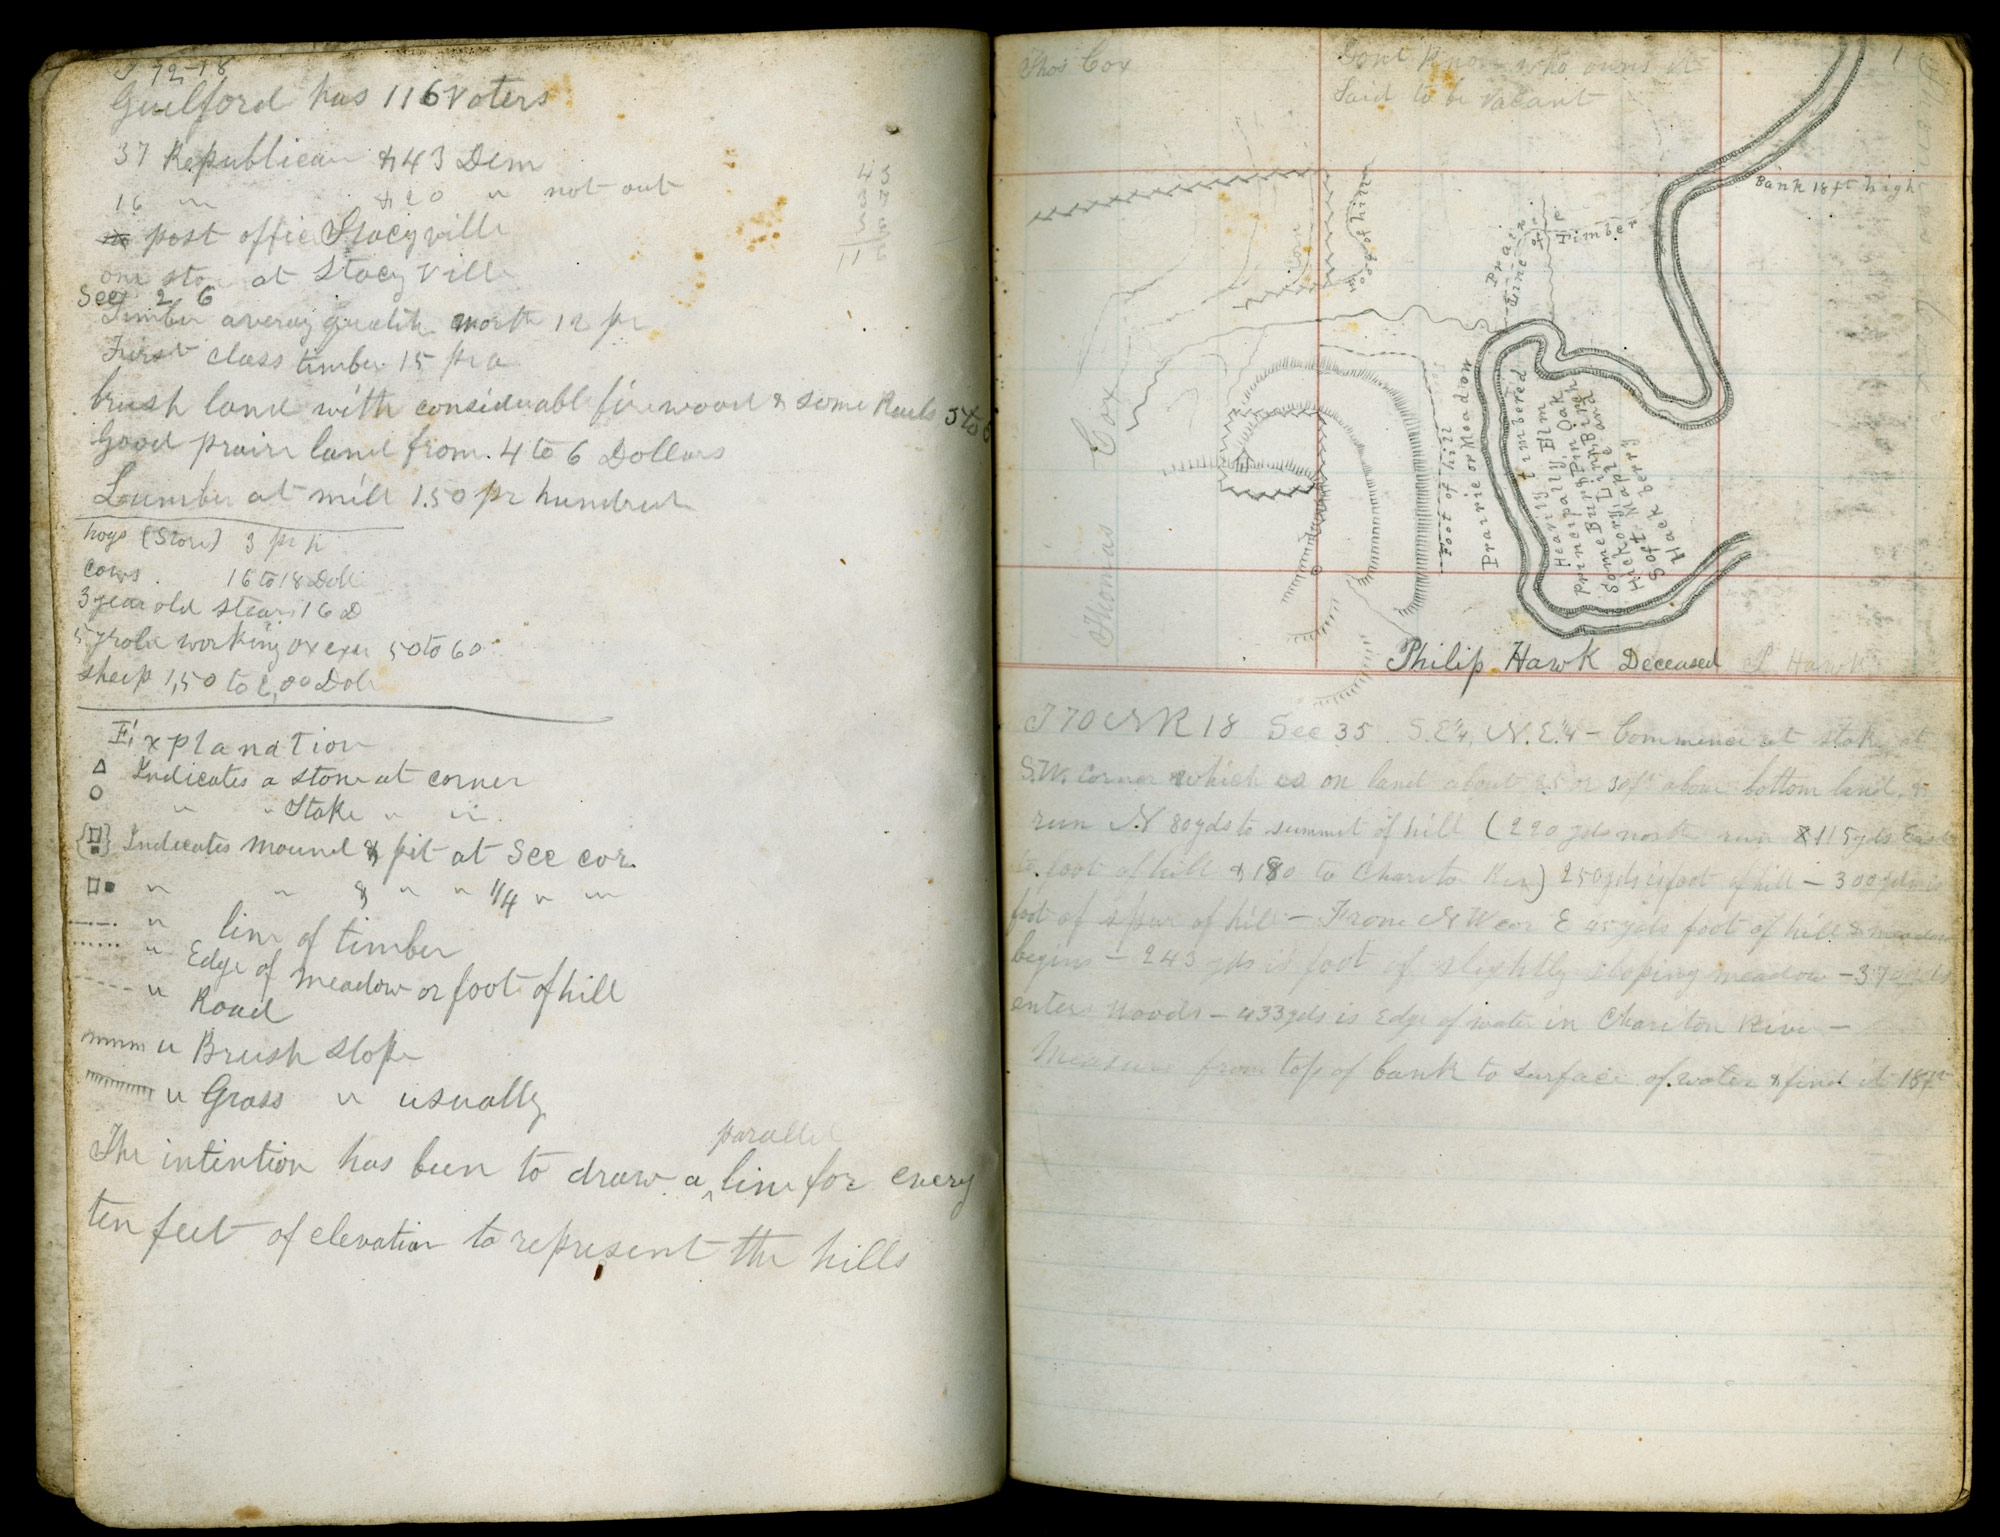 T 72-18
Guilford has 116 Voters
37 Republican & 43 Dem
16 " & 20 " not out
43
37
36
116
post office Stacyville
one sto at Stacy Ville
Sec 26
Timber averag qualit worth 12 pr
First class timber 15 pr a
brush land with considuabl firewood & some Rails 5 to 6
Good prairi land from 4 to 6 Dollars
Lumber at mill 1.50 pr hundred
hogs (Store) 3 pr h
cows 16 to 18 Doll
3 year old stear 16 D
working oxen 50 to 60
sheep 1,50 to 2,00 Dol
Explanation
△ Indicates a stone at corner
○ " " Stake " "
Indicates mound & pit at Sec cor.
" " & " " 1/4 " "
" line of timber
" Edge of meadow or foot of hill
" Road
" Brush slope
" Grass " usually
The intention has been to draw a parallel line for every
ten feet of elevation to represent the hills
1
Thos Cox
Dont Know who owns it
Said to be vacant
Bank 18 ft high
foot of hill
Corn
Prairie
Line of Timber
Thomas Cox
Foot of hill
Prairie or Meadow
Heavily timbered
Principally Elm
Some Burr Pin Oak
Hickory Linn Birch
Soft Maple and
Hackberry
Philip Hawk Deceased P Hawk
T 70 N R 18 Sec 35. S.E¼, N.E.¼ - Commence at stake at
S.W. Corner which is on land about 25 or 30 ft above bottom land &
run N 80 yds to summit of hill (220 yds north run & 115 yds East
to foot of hill & 180 to Chariton Riv) 250 yds is foot of hill - 300 yds is
foot of spur of hill - From N W cor E 45 yds foot of hill & meadow
begins - 243 yds is foot of slightly sloping meadow - 370 yds
enter woods - 433 yds is Edge of water in Chariton River -
Measure from top of bank to surface of water & find it 18 ft